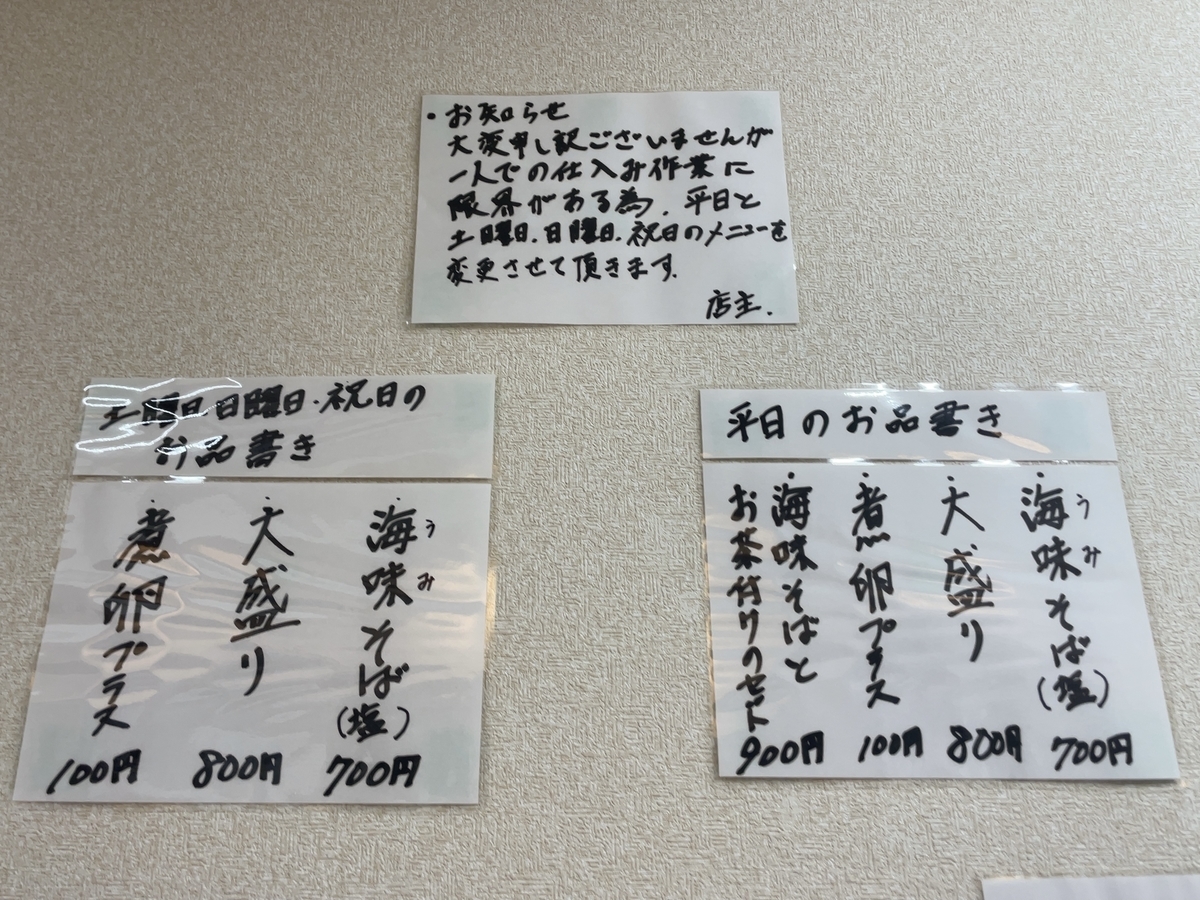 ・お知らせ
大変申し訳ございませんが
一人での仕込み作業に
限界がある為、平日と
土曜日、日曜日、祝日のメニューを
変更させて頂きます。
店主.
土曜日.日曜日.祝日の
お品書き
・海味そば(塩)
うみ
700円
・大盛り
800円
・煮卵プラス
100円
平日のお品書き
・海味そば(塩)
うみ
700円
・大盛り
800円
・煮卵プラス
100円
・海味そばと
お茶付けのセット
900円